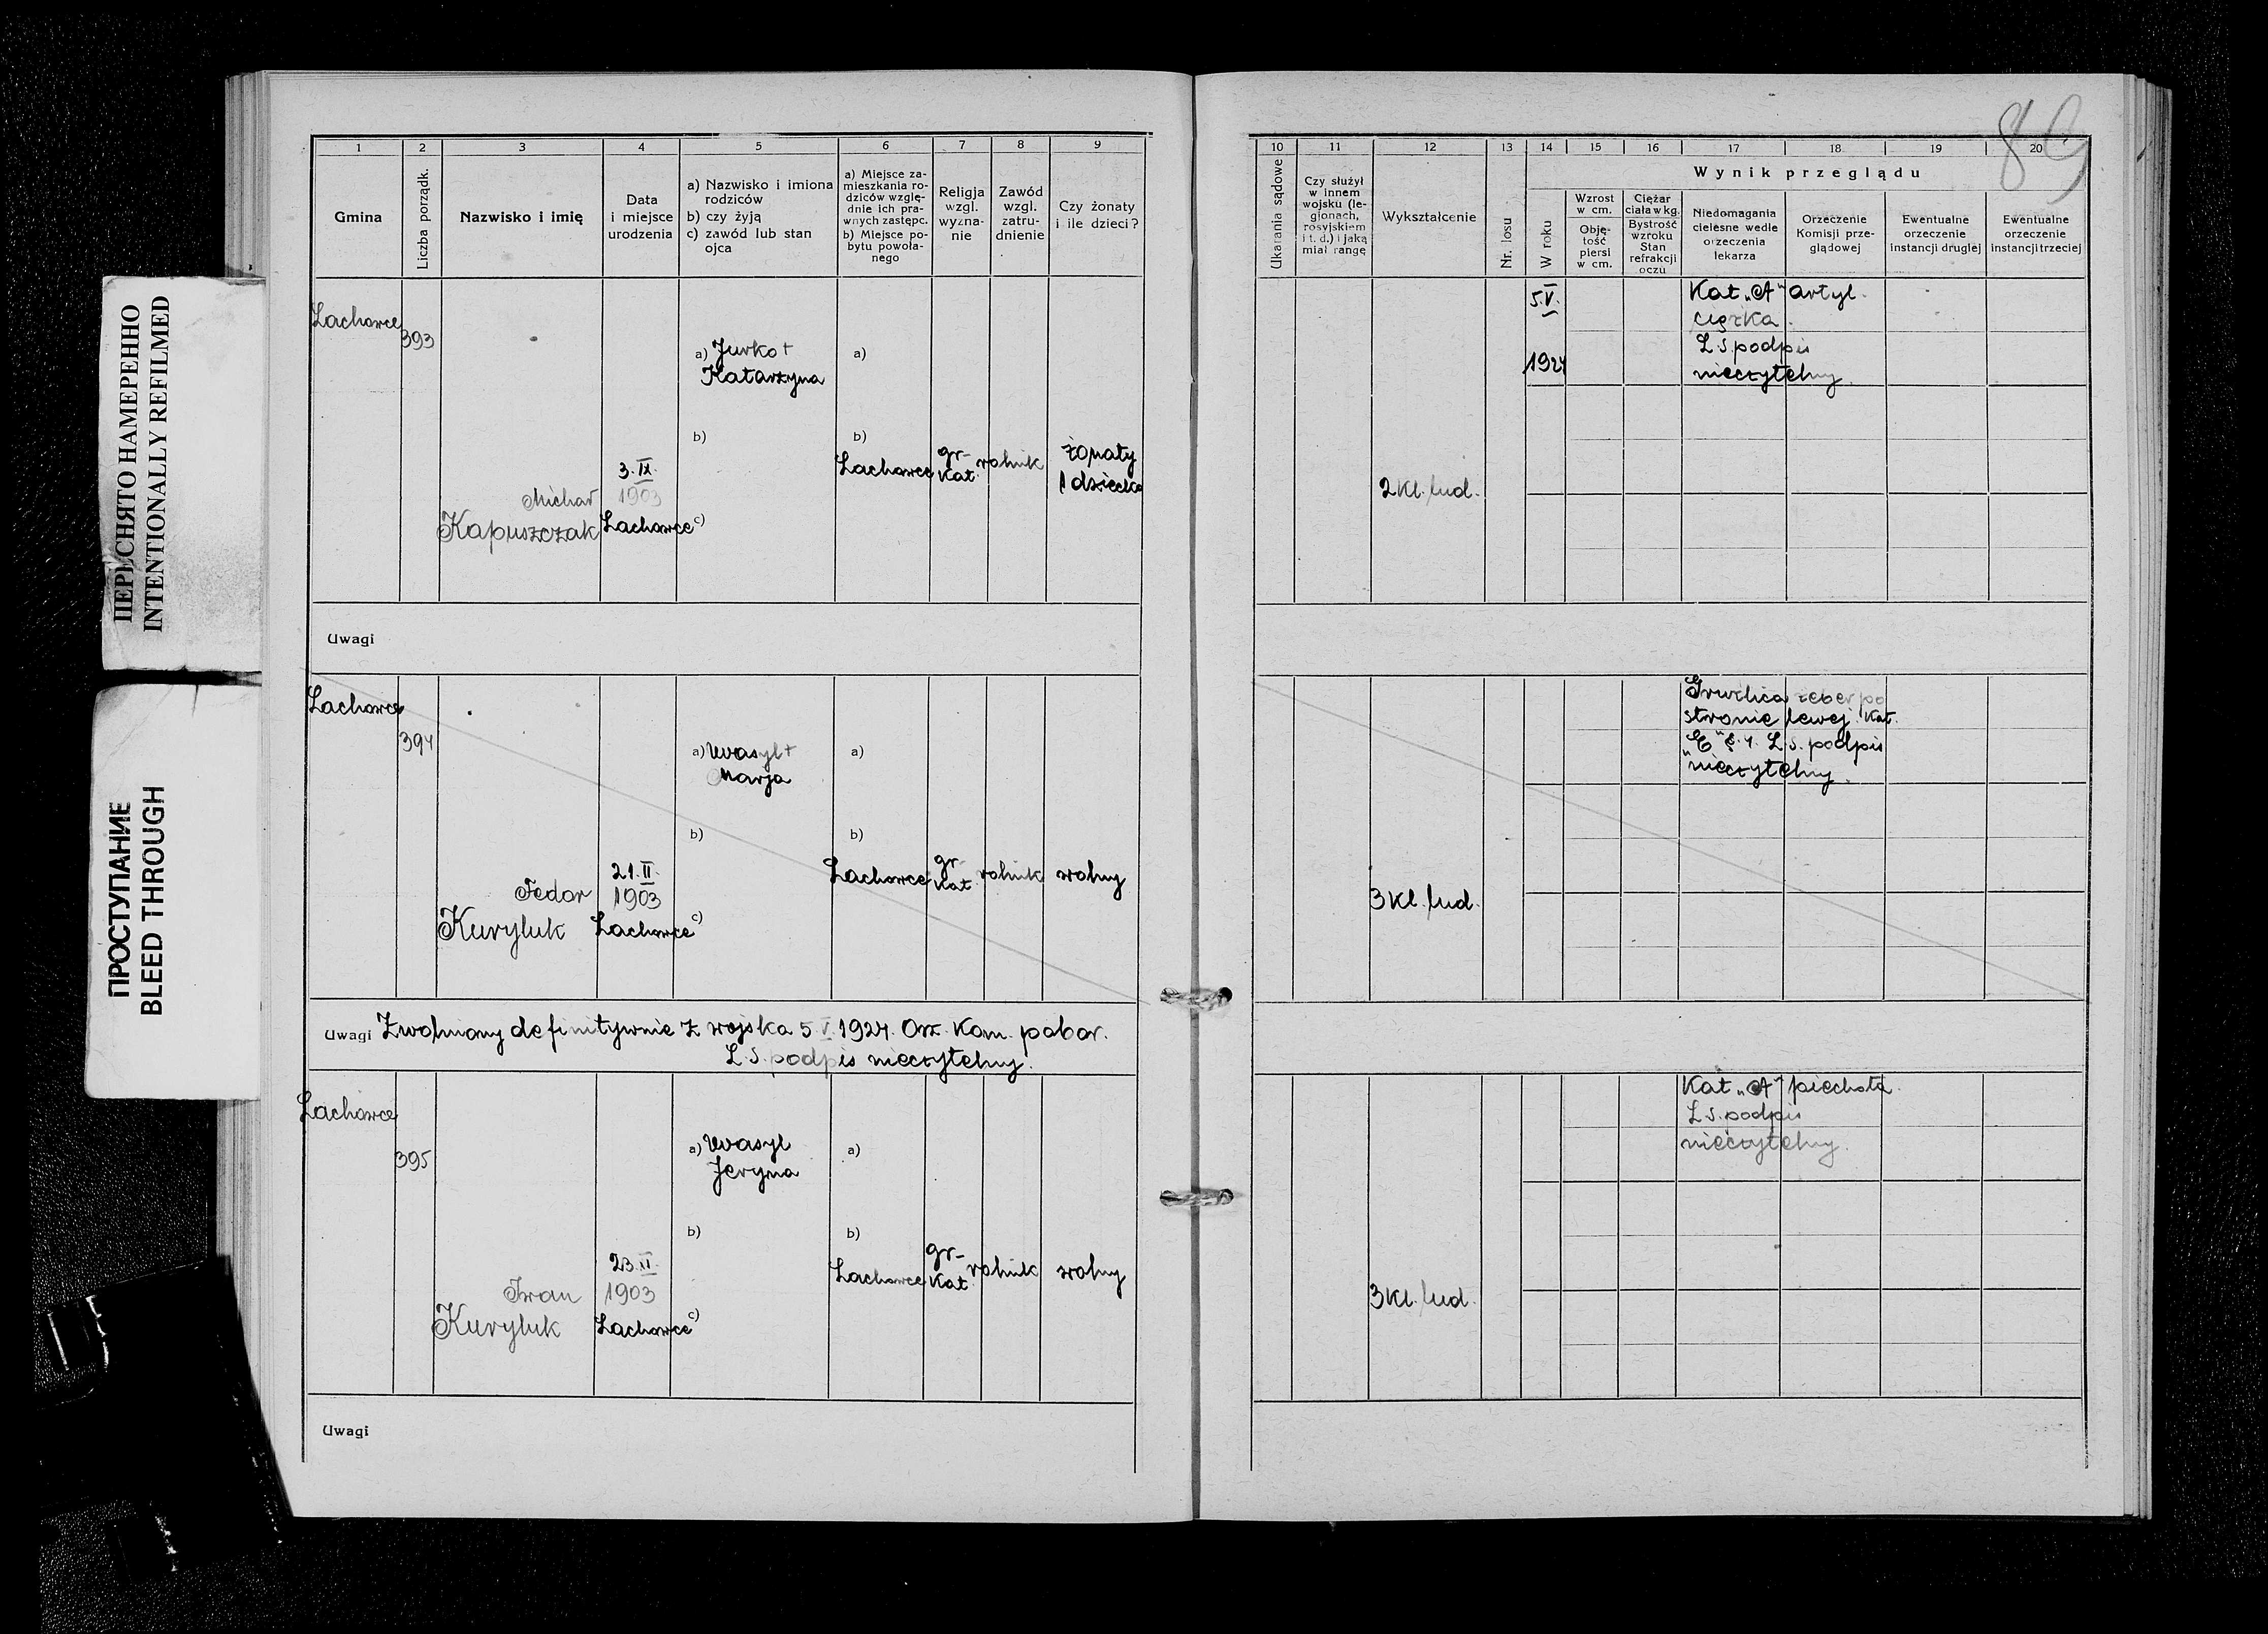 ПЕРЕСНЯТО НАМЕРЕННО
INTENTIONALLY REFILMED
ПРОСТУПАНИЕ
BLEED THROUGH
89
1 2 3 4 5 6 7 8 9
Gmina
Liczba porządk.
Nazwisko i imię
Data
i miejsce
urodzenia
a) Nazwisko i imiona
rodziców
b) czy żyją
c) zawód lub stan
ojca
a) Miejsce za-
mieszkania ro-
dziców wzglę-
dnie ich pra-
wnych zastępc.
b) Miejsce po-
bytu powoła-
nego
Religja
wzgl.
wyzna-
nie
Zawód
wzgl.
zatru-
dnienie
Czy żonaty
i ile dzieci?
10 11 12 13 14 15 16 17 18 19 20
Ukarania sądowe
Czy służył
w innem
wojsku (le-
gjonach,
rosyjskiem
i t. d.) i jaką
miał rangę
Wykształcenie
Nr. losu
Wynik przeglądu
W roku
Wzrost
w cm.
Obję-
tość
piersi
w cm.
Ciężar
ciała w kg.
Bystrość
wzroku
Stan
refrakcji
oczu
Niedomagania
cielesne wedle
orzeczenia
lekarza
Orzeczenie
Komisji prze-
glądowej
Ewentualne
orzeczenie
instancji drugiej
Ewentualne
orzeczenie
instancji trzeciej
Lachowce
393
a) Jurko +
Katarzyna
a)
b)
b)
Lachowce
gr-
kat.
rolnik
żonaty
1 dziecko
3.IX.
1903
Lachowce
Michał
Kapuszczak
c)
2 kl. lud.
5.V.
1924
Kat „A" artyl.
ciężka.
L.S. podpis
nieczytelny.
Uwagi
Lachowce
394
a) Wasyl +
Marja
a)
b)
b)
Lachowce
gr-
kat
rolnik
wolny
21.II.
1903
Lachowce
Fedor
Kuryluk
c)
3 kl. lud.
Gruźlica żeber po
stronie lewej. Kat.
„E" §.4. L.S. podpis
nieczytelny.
Uwagi Zwolniony definitywnie z wojska 5.V.1924. Orz. Kom. pobor.
L.S. podpis nieczytelny.
Lachowce
395
a) Wasyl
Jeryna
a)
b)
b)
Lachowce
gr-
kat
rolnik
wolny
1903
Lachowce
Iwan
Kuryluk
c)
3 kl. lud.
Kat „A" piechota.
L.S. podpis
nieczytelny.
Uwagi